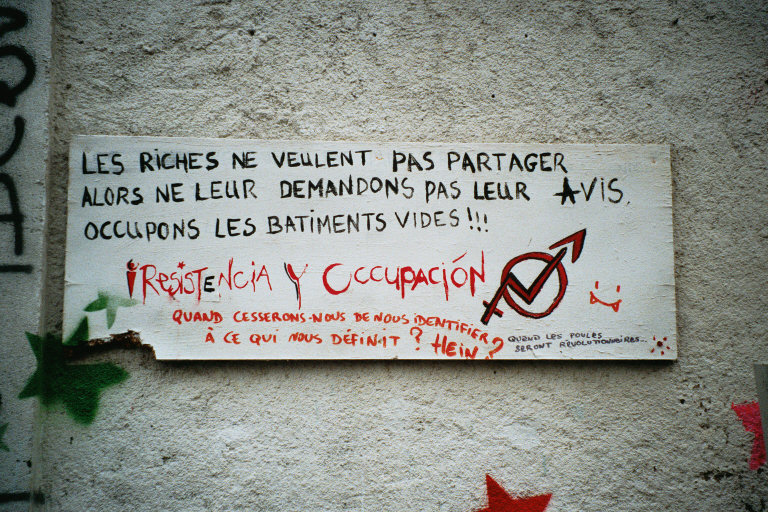 LES RICHES NE VEULENT PAS PARTAGER
ALORS NE LEUR DEMANDONS PAS LEUR AVIS.
OCCUPONS LES BATIMENTS VIDES!!!
¡RESISTENCIA Y OCCUPACIÓN
QUAND CESSERONS-NOUS DE NOUS IDENTIFIER
À CE QUI NOUS DÉFINIT ? HEIN ?
QUAND LES POULES
SERONT RÉVOLUTIONNAIRES...